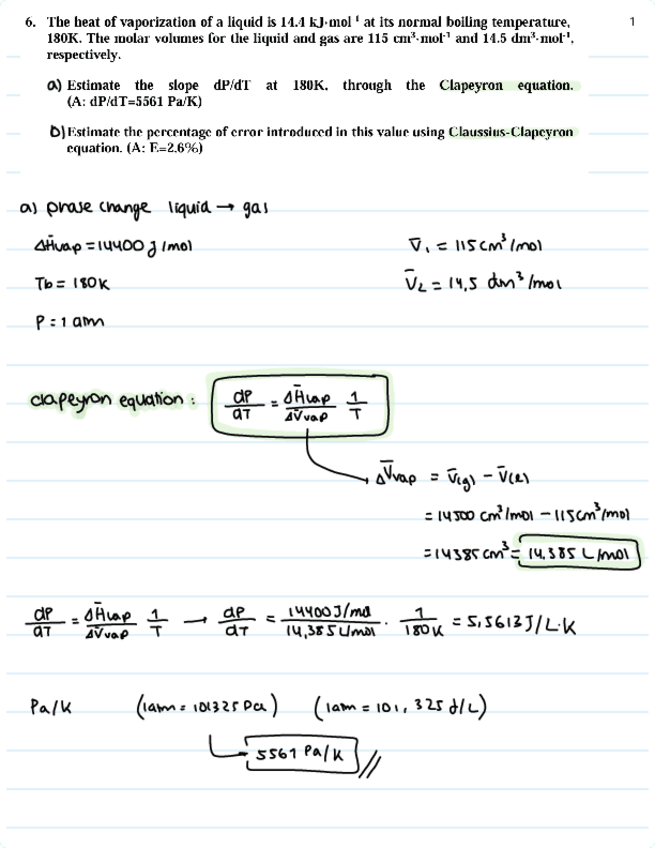 6. The heat of vaporization of a liquid is 14.4 kJ·mol⁻¹ at its normal boiling temperature,
1
180K. The molar volumes for the liquid and gas are 115 cm³·mol⁻¹ and 14.5 dm³·mol⁻¹,
respectively.
a) Estimate the slope dP/dT at 180K, through the Clapeyron equation.
(A: dP/dT=5561 Pa/K)
b) Estimate the percentage of error introduced in this value using Claussius-Clapeyron
equation. (A: E=2.6%)
a) phase change liquid → gas
ΔH̄vap = 14400 J/mol
V̄₁ = 115 cm³/mol
Tb = 180K
V̄₂ = 14,5 dm³/mol
P = 1 atm
clapeyron equation : dP/dT = ΔH̄vap/ΔV̄vap 1/T
ΔV̄vap = V̄(g) - V̄(l)
= 14500 cm³/mol - 115 cm³/mol
= 14385 cm³ = 14.385 L/mol
dP/dT = ΔH̄vap/ΔV̄vap 1/T → dP/dT = 14400 J/mol/14,385 L/mol · 1/180K = 5,5613 J/L·K
Pa/K (1atm = 101325 Pa) (1atm = 101,325 J/L)
5561 Pa/K //